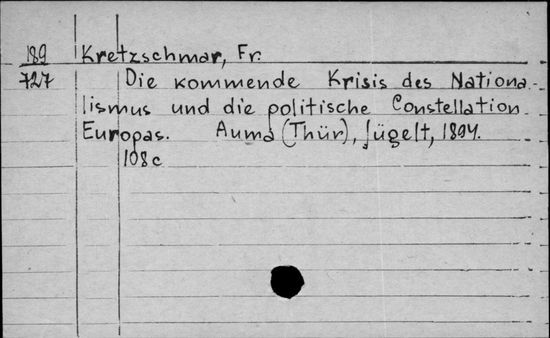 189 Kretzschmar, Fr.
727 Die kommende Krisis des Nationa-
lismus und die politische Constellation
Europas. Auma (Thür), Jügelt, 1894.
108 c